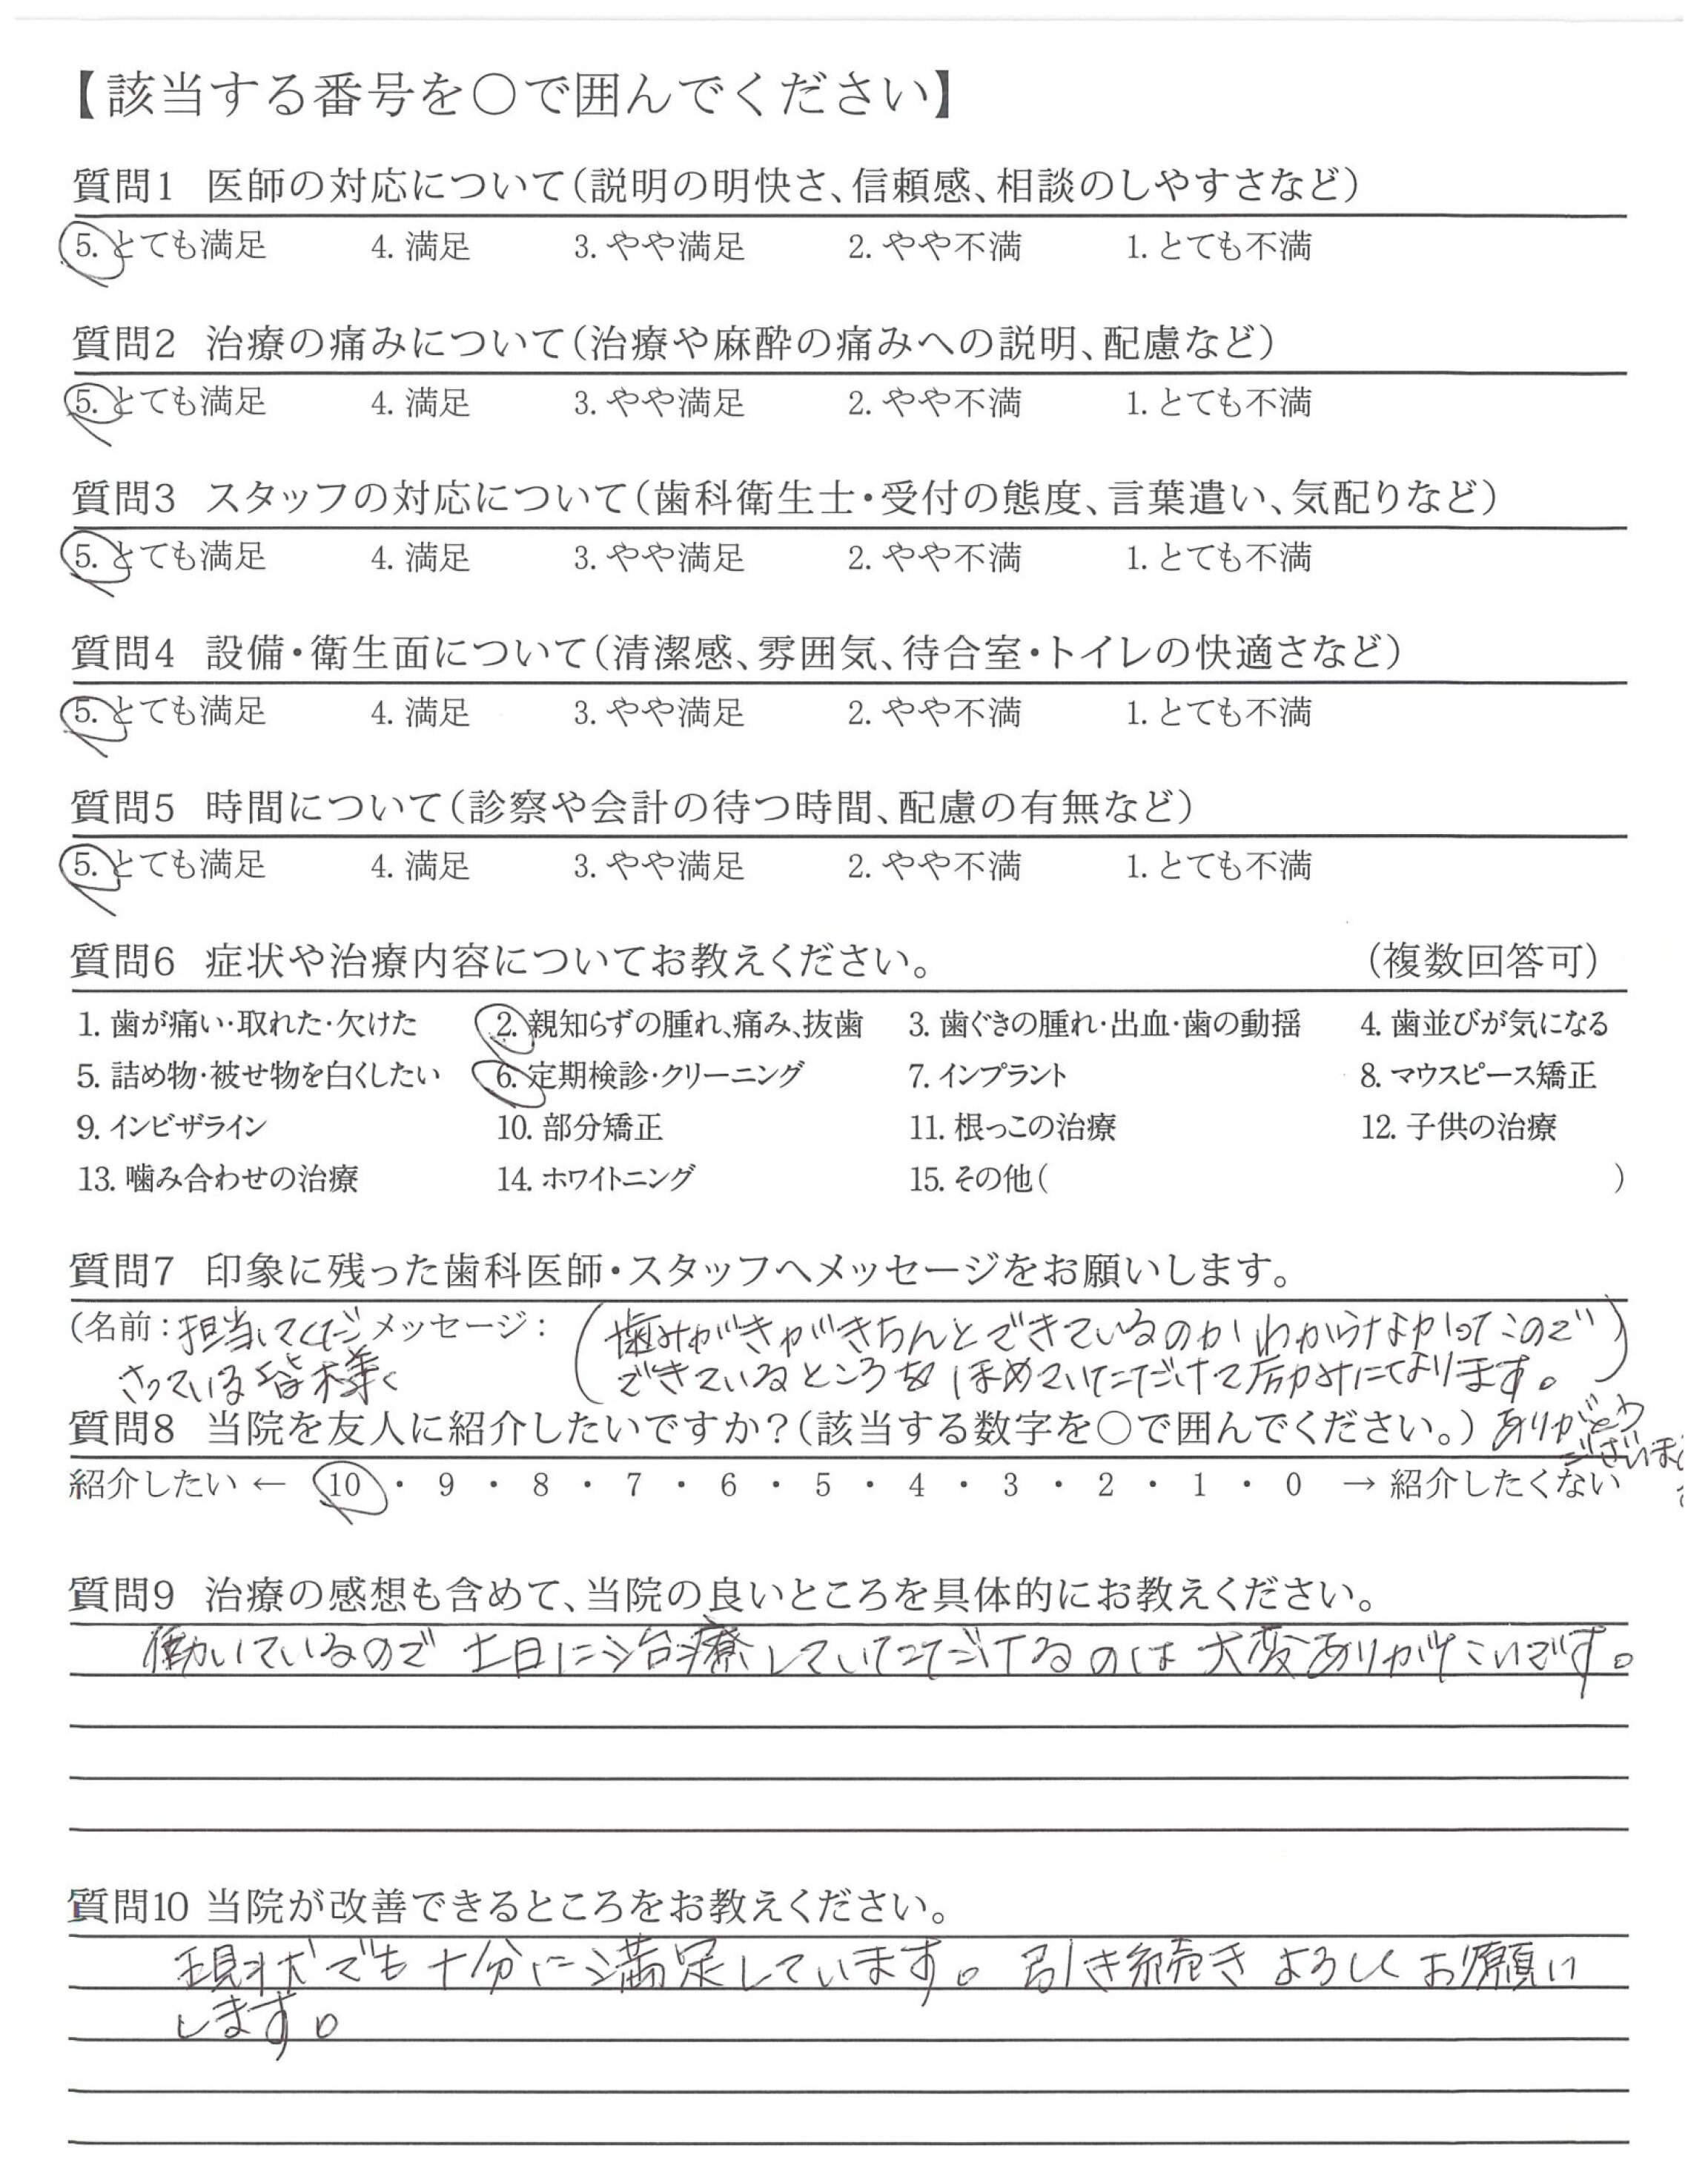 【該当する番号を○で囲んでください】
質問1 医師の対応について(説明の明快さ、信頼感、相談のしやすさなど)
5. とても満足 4. 満足 3. やや満足 2. やや不満 1. とても不満
質問2 治療の痛みについて(治療や麻酔の痛みへの説明、配慮など)
5. とても満足 4. 満足 3. やや満足 2. やや不満 1. とても不満
質問3 スタッフの対応について(歯科衛生士・受付の態度、言葉遣い、気配りなど)
5. とても満足 4. 満足 3. やや満足 2. やや不満 1. とても不満
質問4 設備・衛生面について(清潔感、雰囲気、待合室・トイレの快適さなど)
5. とても満足 4. 満足 3. やや満足 2. やや不満 1. とても不満
質問5 時間について(診察や会計の待つ時間、配慮の有無など)
5. とても満足 4. 満足 3. やや満足 2. やや不満 1. とても不満
質問6 症状や治療内容についてお教えください。 (複数回答可)
1. 歯が痛い・取れた・欠けた 2. 親知らずの腫れ、痛み、抜歯 3. 歯ぐきの腫れ・出血・歯の動揺 4. 歯並びが気になる
5. 詰め物・被せ物を白くしたい 6. 定期検診・クリーニング 7. インプラント 8. マウスピース矯正
9. インビザライン 10. 部分矯正 11. 根っこの治療 12. 子供の治療
13. 噛み合わせの治療 14. ホワイトニング 15. その他( )
質問7 印象に残った歯科医師・スタッフへメッセージをお願いします。
(名前:担当してくだ メッセージ: (歯みがきがきちんとできているのかわからなかったので)
さっている皆様へ できているところをほめていただけて励みになります。
質問8 当院を友人に紹介したいですか?(該当する数字を○で囲んでください。) ありがとう
ございま
紹介したい ← 10 ・ 9 ・ 8 ・ 7 ・ 6 ・ 5 ・ 4 ・ 3 ・ 2 ・ 1 ・ 0 → 紹介したくない
質問9 治療の感想も含めて、当院の良いところを具体的にお教えください。
働いているので土日に治療していただけるのは大変ありがたいです。
質問10 当院が改善できるところをお教えください。
現状でも十分に満足しています。引き続きよろしくお願い
します。